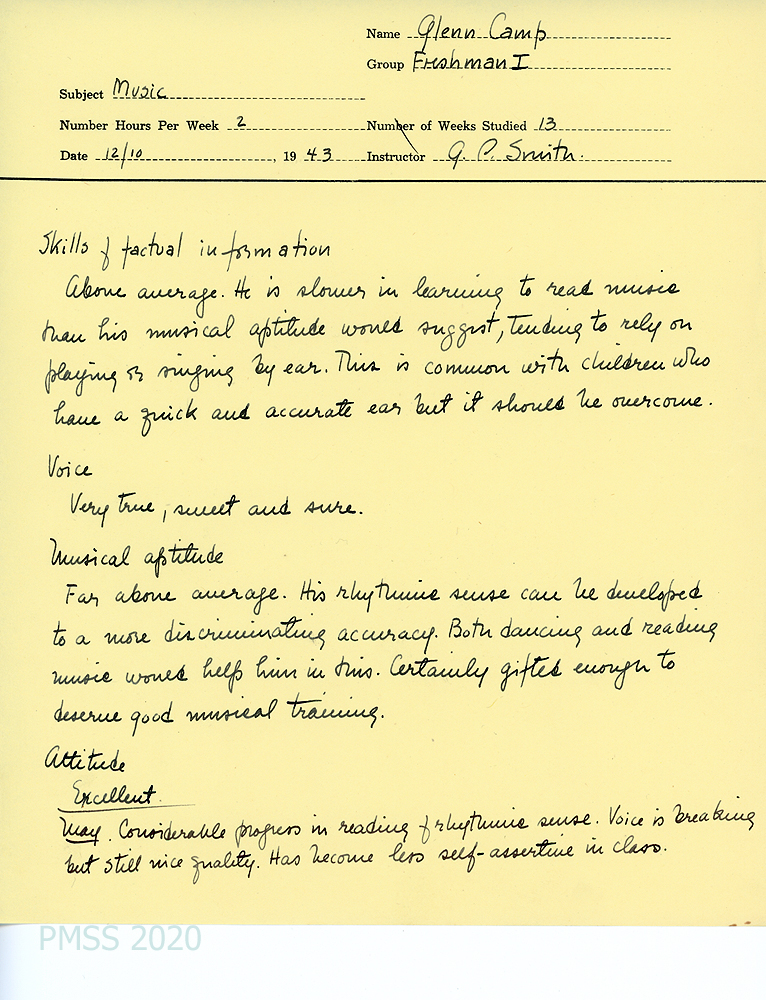 Name Glenn Camp
Group Freshman I
Subject Music
Number Hours Per Week 2 Number of Weeks Studied 13
Date 12/10, 1943 Instructor G. P. Smith.
Skills & factual information
Above average. He is slower in learning to read music
than his musical aptitude would suggest, tending to rely on
playing or singing by ear. This is common with children who
have a quick and accurate ear but it should be overcome.
Voice
Very true, sweet and sure.
Musical aptitude
Far above average. His rhythmic sense can be developed
to a more discriminating accuracy. Both dancing and reading
music would help him in this. Certainly gifted enough to
deserve good musical training.
Attitude
Excellent.
May. Considerable progress in reading & rhythmic sense. Voice is breaking
but still nice quality. Has become less self-assertive in class.
PMSS 2020